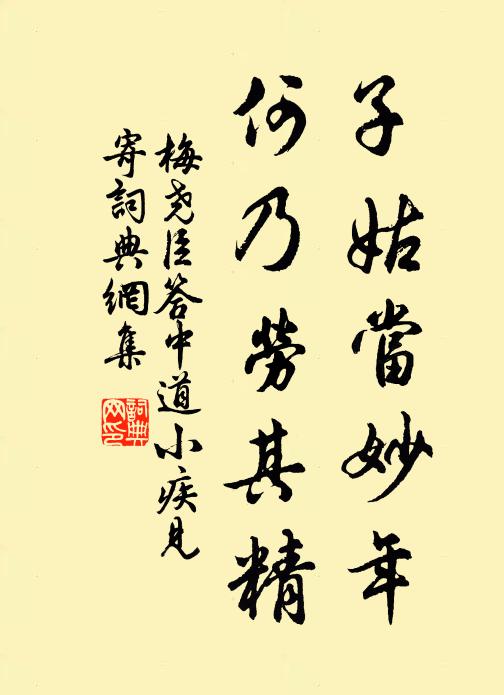 子姑當妙年
何乃勞其精
梅尧臣答中道小疾見
寄詞典網集
詞典
网印